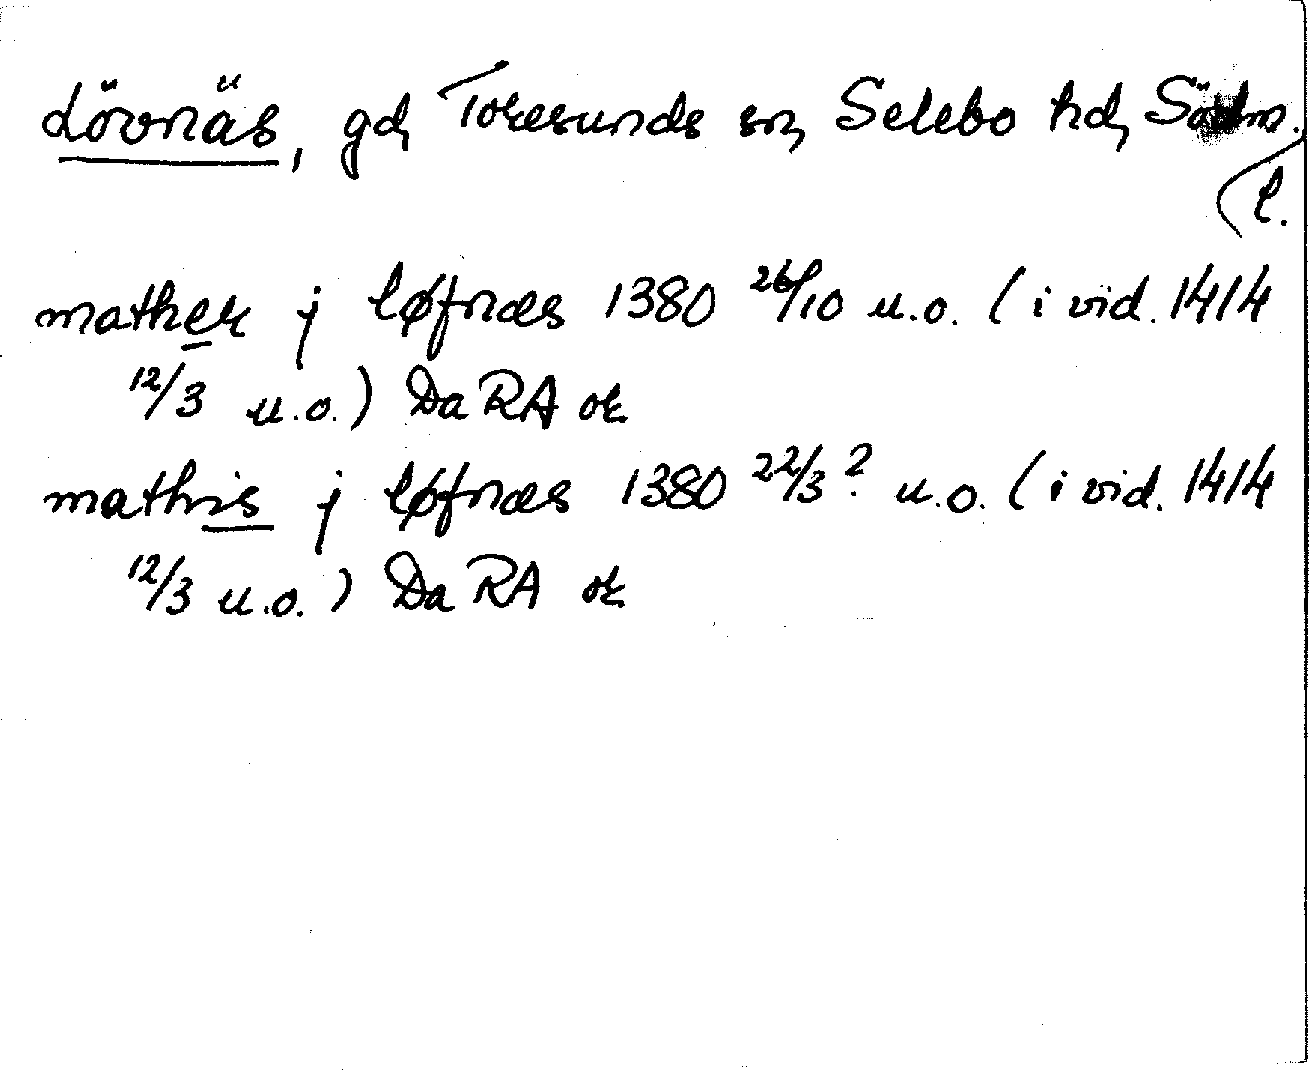 Lövnäs, gd, Toresunds sn, Selebo hd, Södm.
l.
mathek j løfnæs 1380 26/10 u.o. (i vid. 1414
12/3 u.o.) Da RA ok
mathis j løfnæs 1380 22/3? u.o. (i vid. 1414
12/3 u.o.) Da RA ok